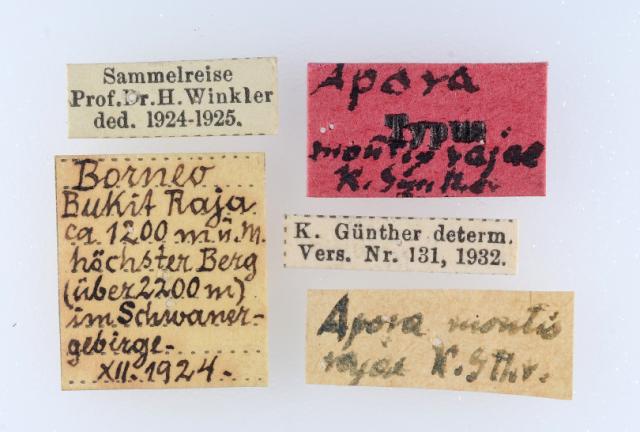 Sammelreise
Prof.Dr.H.Winkler
ded. 1924-1925.
Borneo
Bukit Raja
ca 1200 m ü. M.
höchster Berg
(über 2200 m)
im Schwaner-
gebirge.
XII. 1924.
Apora
Typus
montis rajae
K. Günther
K. Günther determ.
Vers. Nr. 131, 1932.
Apora montis
rajae K. Gthr.